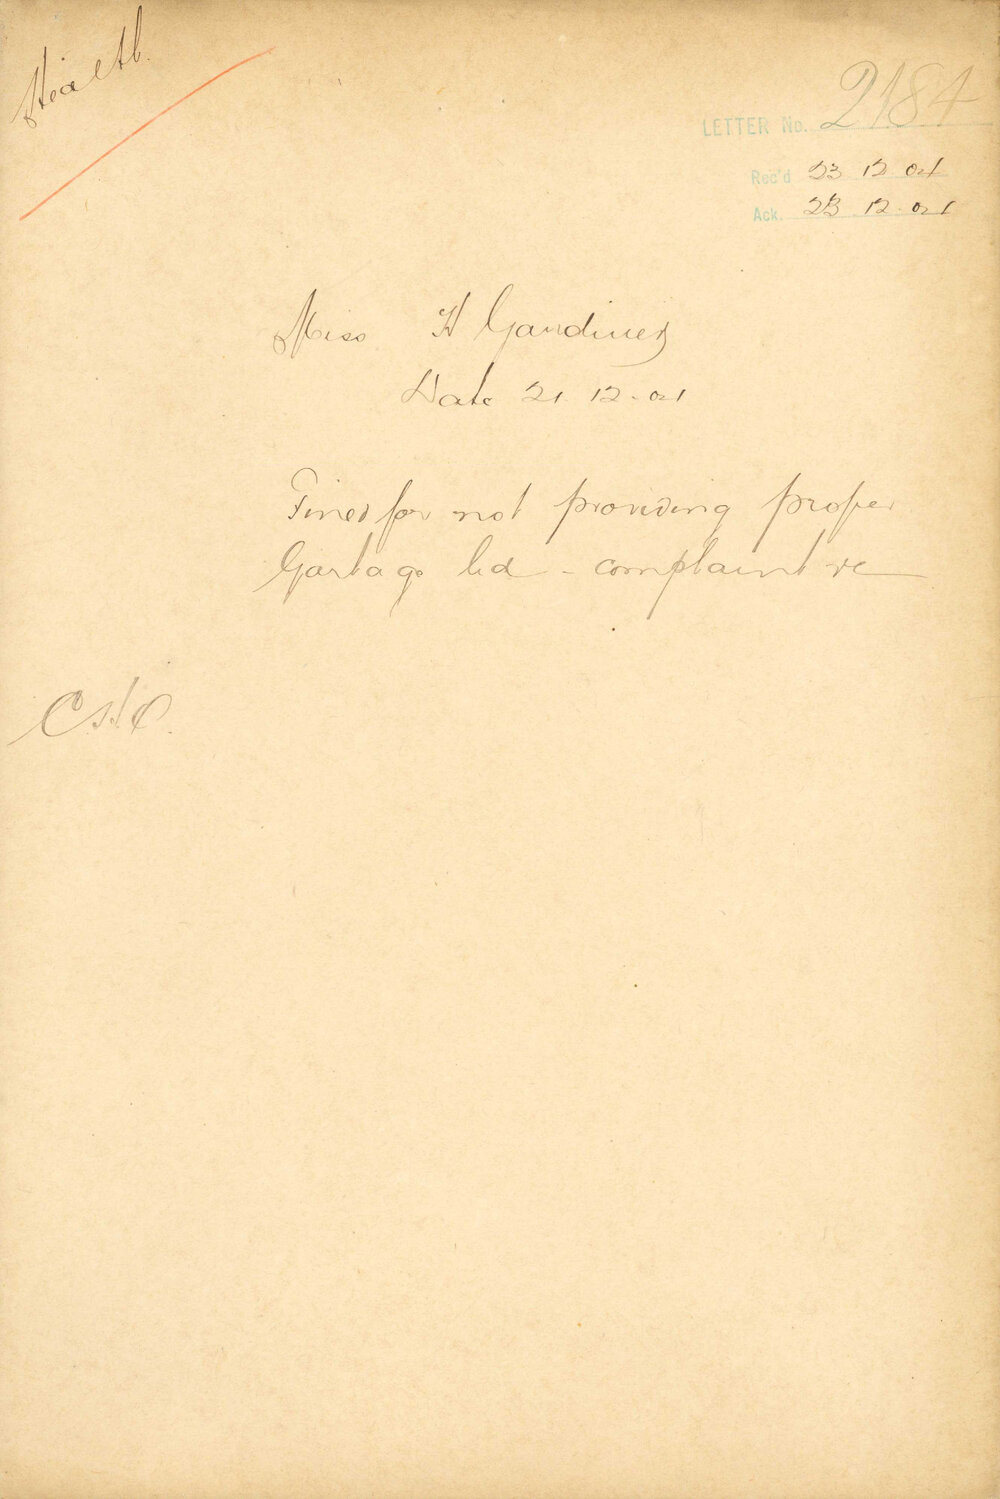 Health.
LETTER No. 2184
Rec'd 23 12 04
Ack. 23. 12. 04
Miss H Gardiner
Date 21. 12. 04
Fined for not providing proper
Garbage lid - complaint re